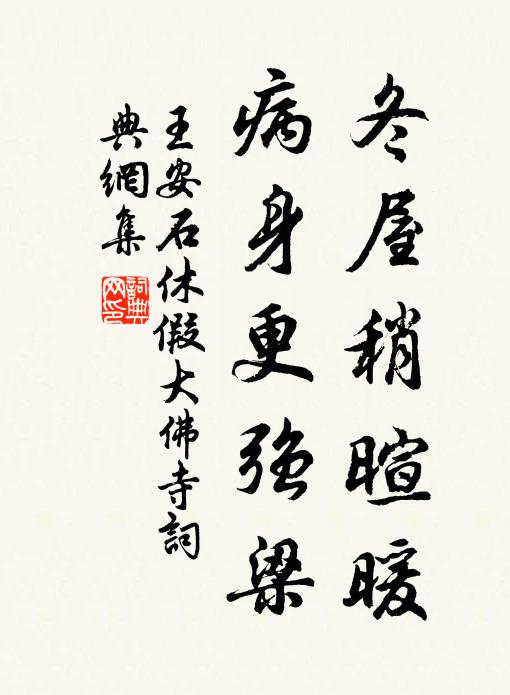 冬屋稍暄暖
病身更强梁
王安石休假大佛寺詞
典網集
詞典
网印